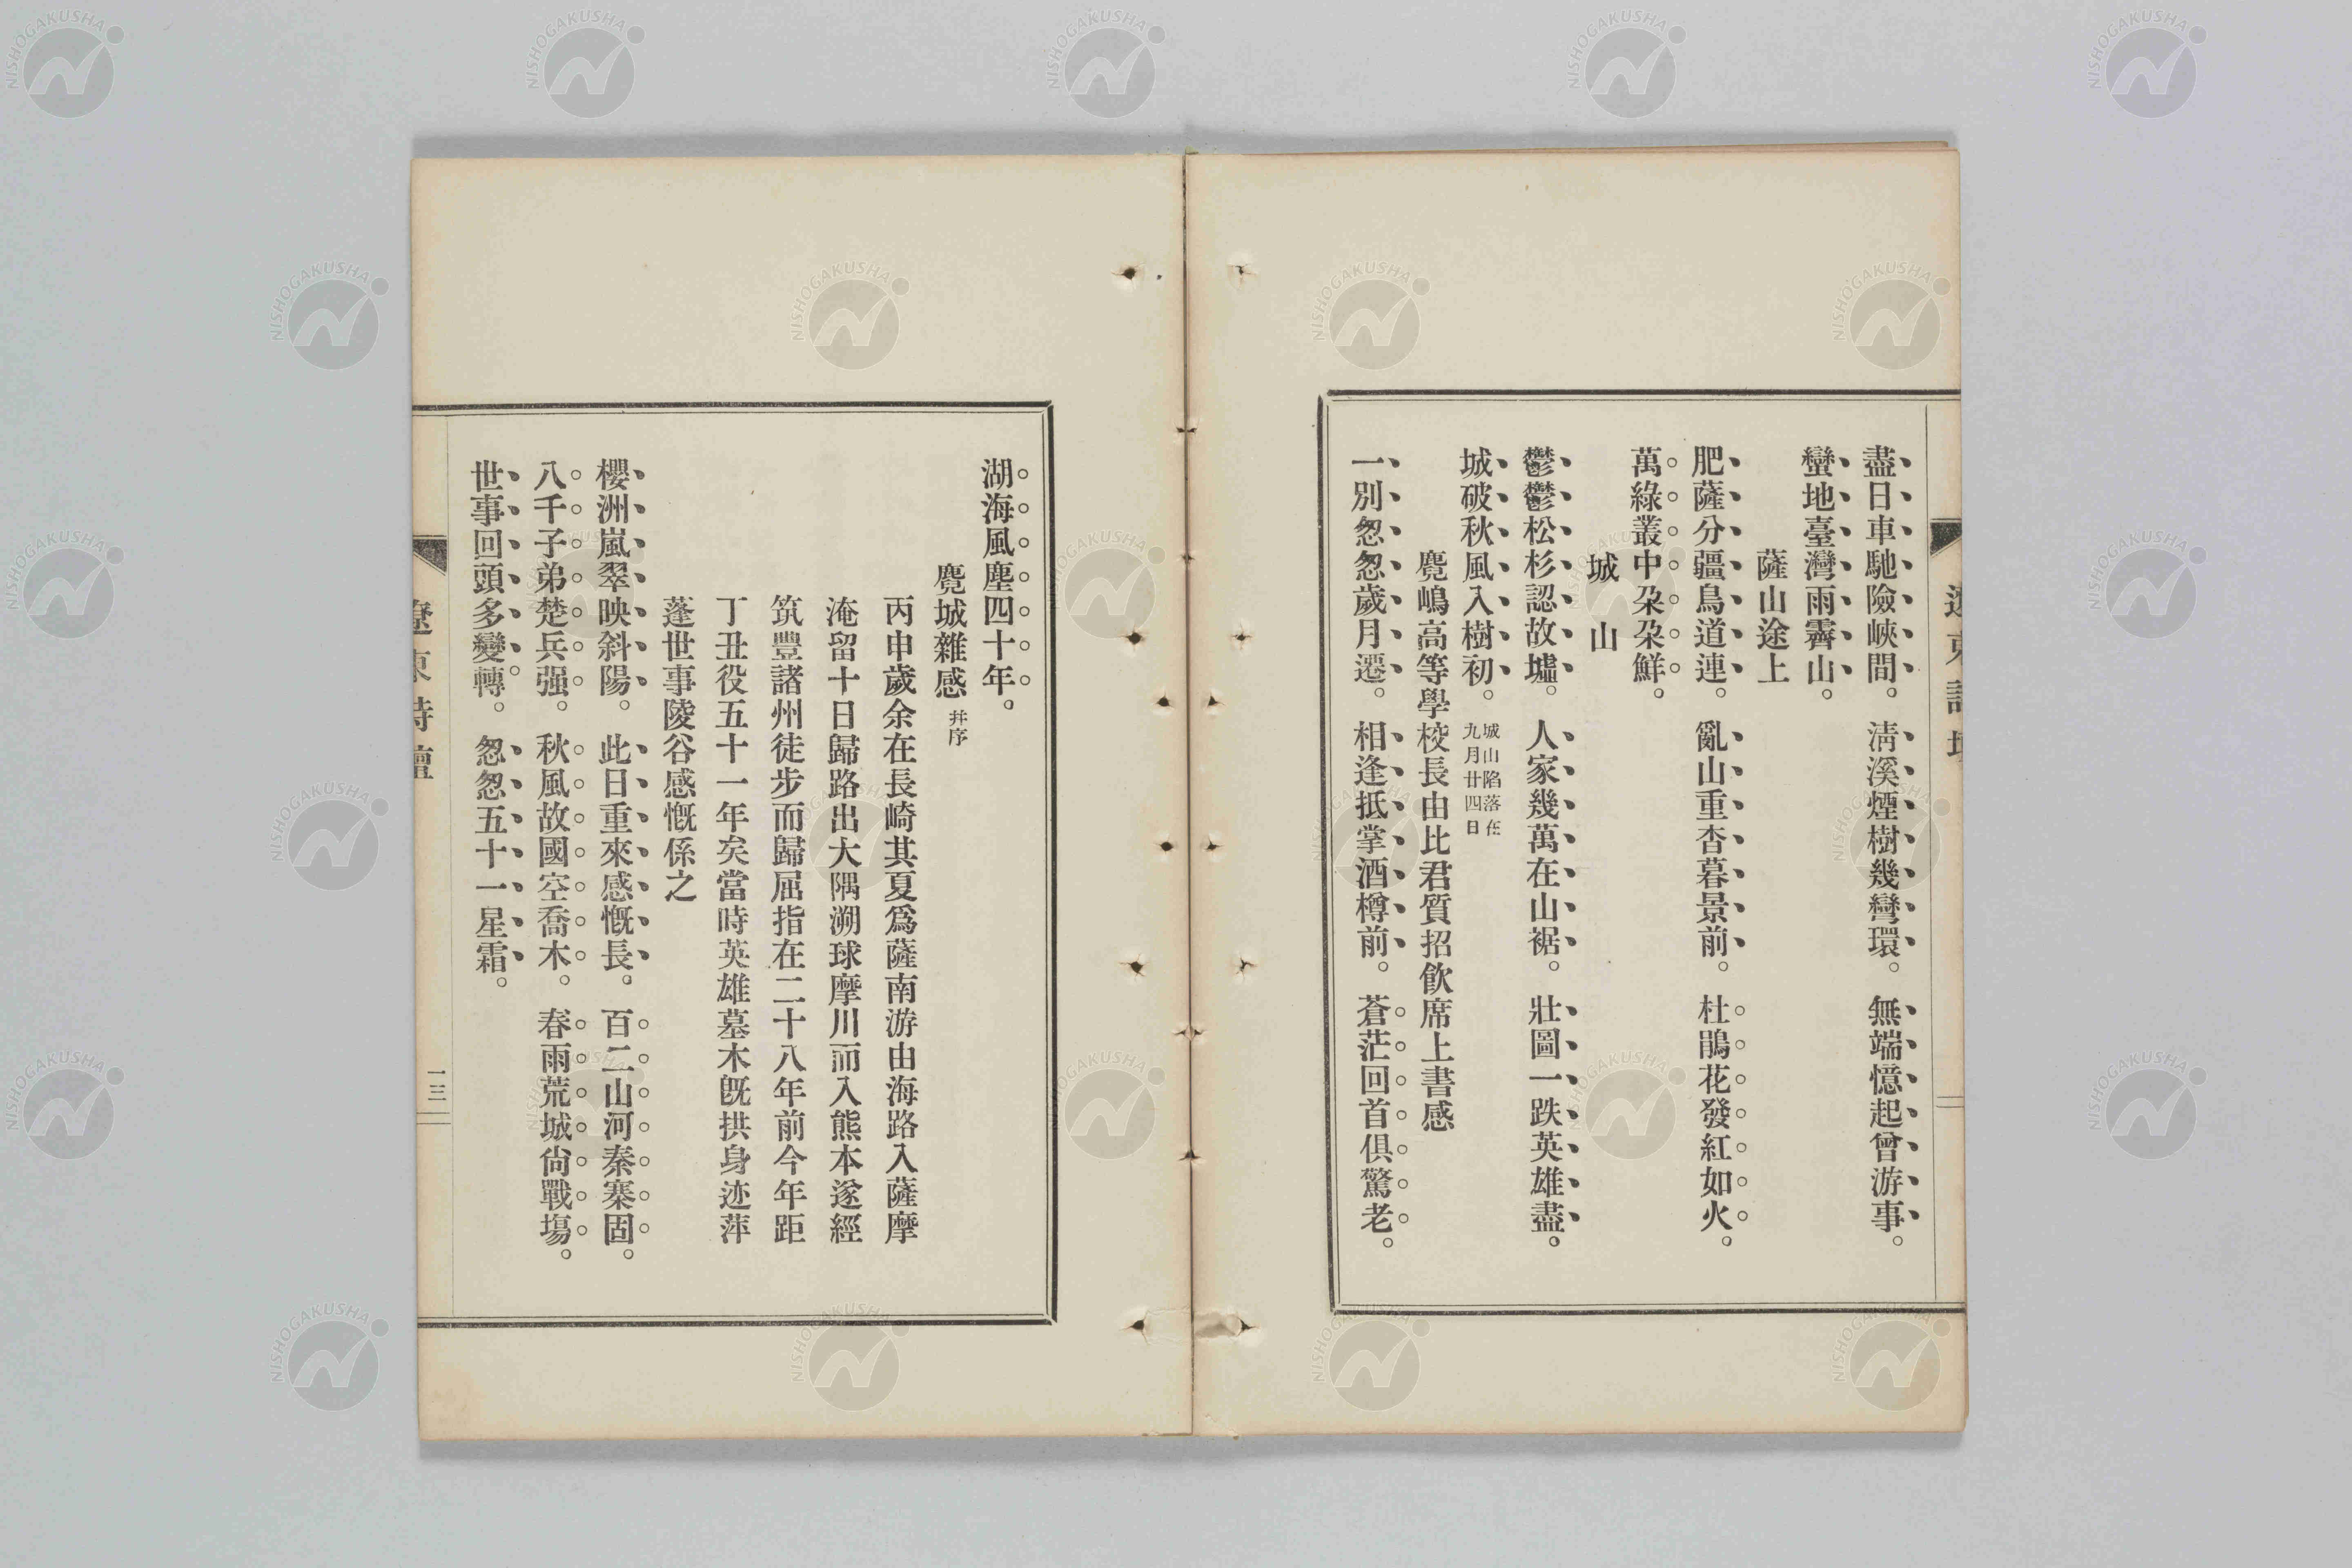 盡日車馳險峽間。淸溪煙樹幾彎環。無端憶起曾游事。
蠻地臺灣雨霽山。
薩山途上
肥薩分疆鳥道連。亂山重杳暮景前。杜鵑花發紅如火。
萬綠叢中朶朶鮮。
城山
鬱鬱松杉認故墟。人家幾萬在山裾。壯圖一跌英雄盡。
城破秋風入樹初。城山陷落在九月廿四日
麑嶋高等學校長由比君質招飮席上書感
一別怱怱歲月遷。相逢抵掌酒樽前。蒼茫回首俱驚老。
湖海風塵四十年。
麑城雜感 幷序
丙申歲余在長崎其夏爲薩南游由海路入薩摩
淹留十日歸路出大隅溯球摩川而入熊本遂經
筑豐諸州徒步而歸屈指在二十八年前今年距
丁丑役五十一年矣當時英雄墓木旣拱身迹萍
蓬世事陵谷感慨係之
櫻洲嵐翠映斜陽。此日重來感慨長。百二山河秦寨固。
八千子弟楚兵强。秋風故國空喬木。春雨荒城尙戰塲。
世事回頭多變轉。怱怱五十一星霜。
遼東詩壇
一三
NISHOGAKUSHA